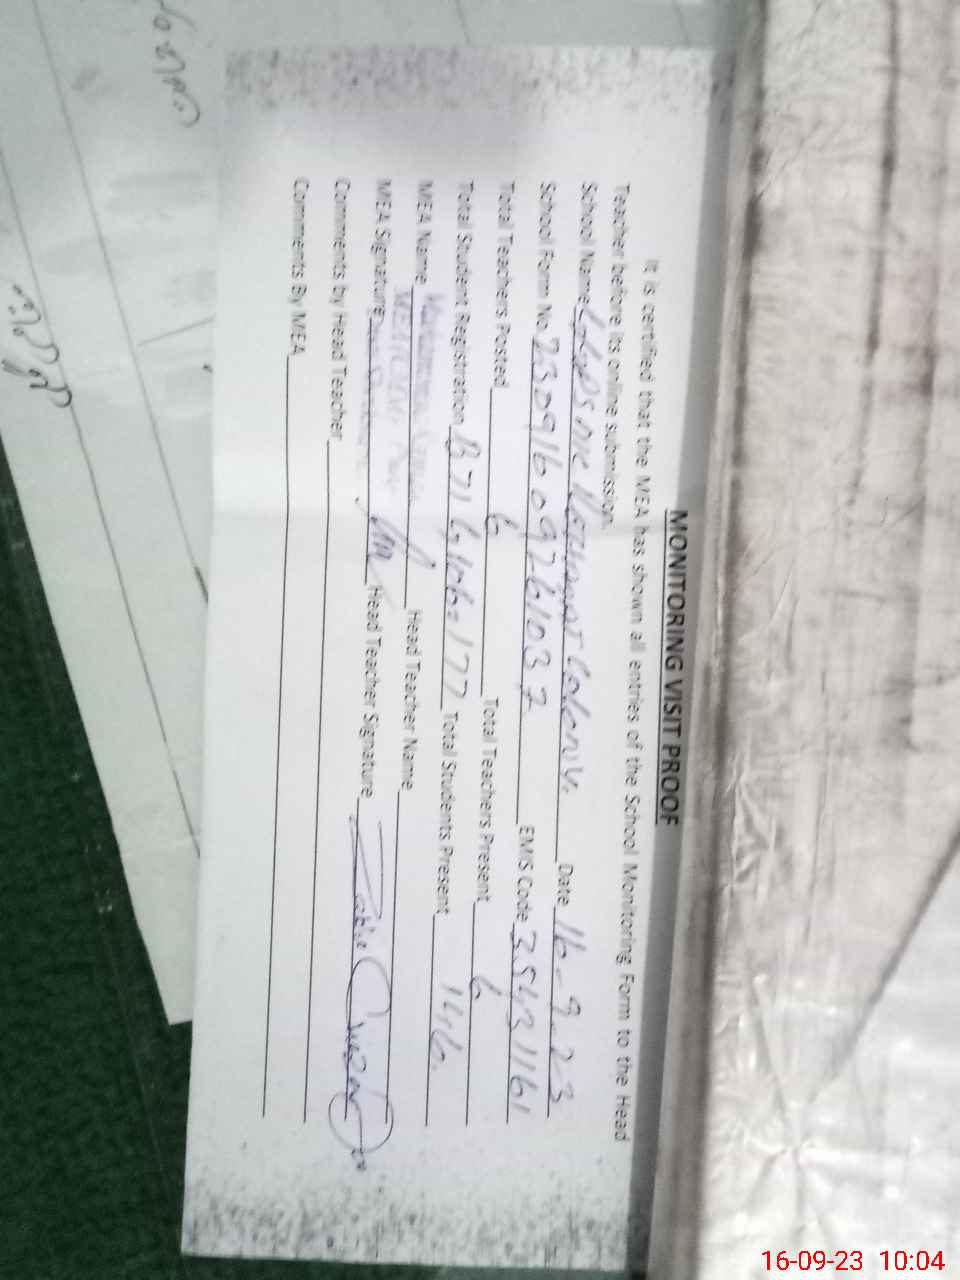 MONITORING VISIT PROOF
It is certified that the MEA has shown all entries of the School Monitoring Form to the Head
Teacher before its online submission.
School Name GGPS MC Colony. Date 16-9-23
School Form No. 23091609261037 EMIS Code 35431161
Total Teachers Posted 6 Total Teachers Present 6
Total Student Registration B 71 G 106=177 Total Students Present 146.
MEA Name Head Teacher Name
MEA Signature Head Teacher Signature
Comments by Head Teacher
Comments By MEA
16-09-23 10:04